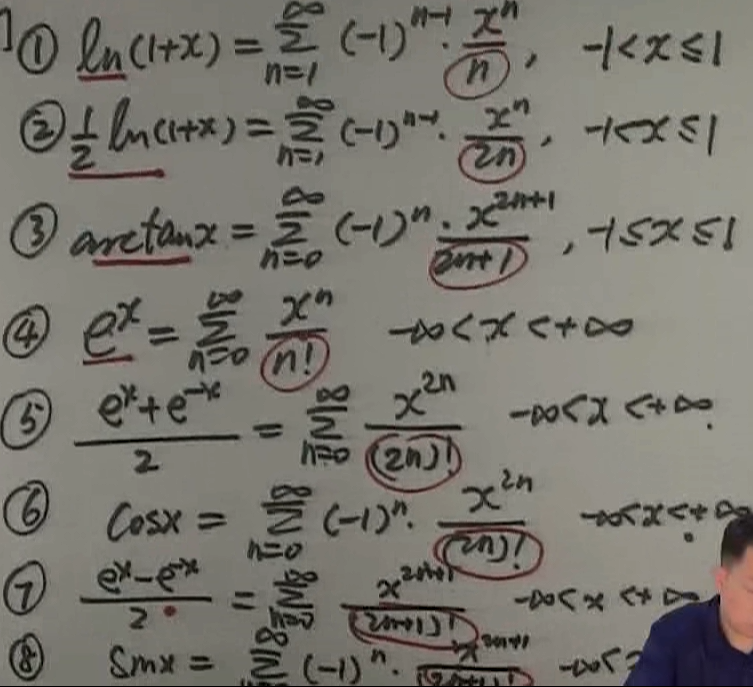 ① ln(1+x) = ∑_{n=1}^{∞} (-1)^{n-1} · x^n/n , -1<x≤1
② 1/2 ln(1+x) = ∑_{n=1}^{∞} (-1)^{n-1} · x^n/2n , -1<x≤1
③ arctanx = ∑_{n=0}^{∞} (-1)^n · x^{2n+1}/2n+1 , -1≤x≤1
④ e^x = ∑_{n=0}^{∞} x^n/n! -∞<x<+∞
⑤ e^x+e^{-x}/2 = ∑_{n=0}^{∞} x^{2n}/(2n)! -∞<x<+∞.
⑥ cosx = ∑_{n=0}^{∞} (-1)^n · x^{2n}/(2n)! -∞<x<+∞
⑦ e^x-e^{-x}/2 = ∑_{n=0}^{∞} x^{2n+1}/(2n+1)! -∞<x<+∞
⑧ sinx = ∑^{∞} (-1)^n · x^{2n+1}/(2n+1)! -∞<